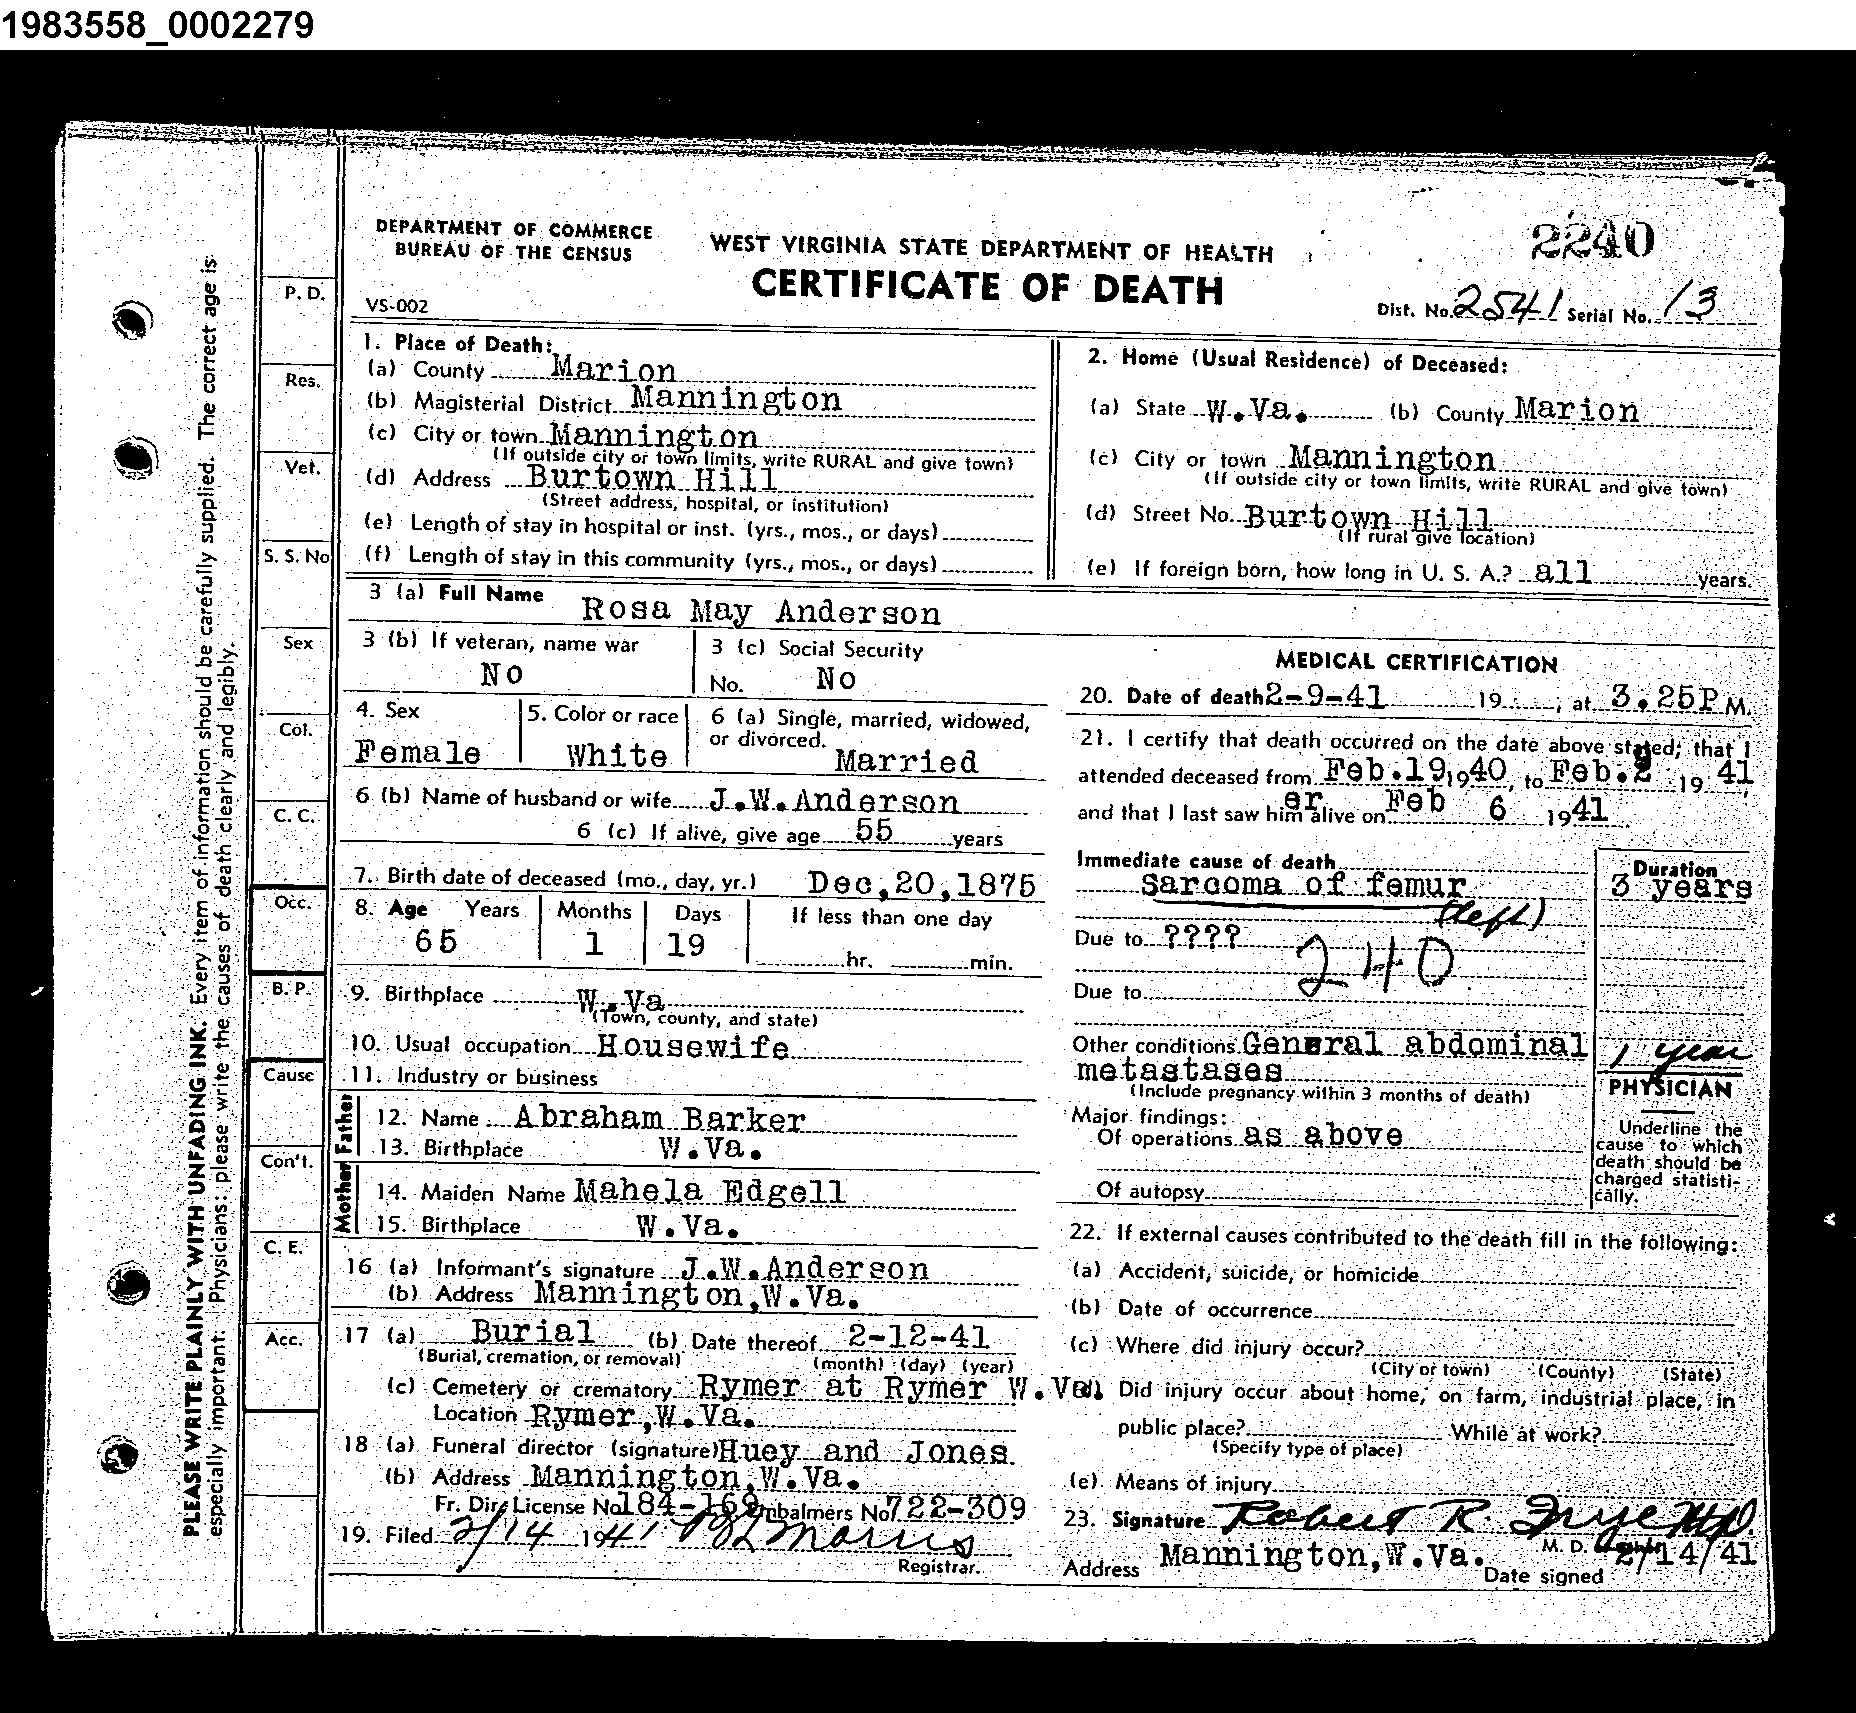 1983558_0002279
DEPARTMENT OF COMMERCE
BUREAU OF THE CENSUS
WEST VIRGINIA STATE DEPARTMENT OF HEALTH
CERTIFICATE OF DEATH
2240
VS-002
Dist. No. 2541 Serial No. 13
PLEASE WRITE PLAINLY WITH UNFADING INK. Every item of information should be carefully supplied. The correct age is
especially important. Physicians: please write the causes of death clearly and legibly.
P. D.
Res.
Vet.
S. S. No
Sex
Col.
C. C.
Occ.
B. P.
Cause
Con't.
C. E.
Acc.
1. Place of Death:
(a) County Marion
(b) Magisterial District Mannington
(c) City or town Mannington
(If outside city or town limits, write RURAL and give town)
(d) Address Burtown Hill
(Street address, hospital, or institution)
(e) Length of stay in hospital or inst. (yrs., mos., or days)
(f) Length of stay in this community (yrs., mos., or days)
2. Home (Usual Residence) of Deceased:
(a) State W.Va. (b) County Marion
(c) City or town Mannington
(If outside city or town limits, write RURAL and give town)
(d) Street No. Burtown Hill
(If rural give location)
(e) If foreign born, how long in U. S. A.? all years.
3 (a) Full Name Rosa May Anderson
3 (b) If veteran, name war
No
3 (c) Social Security
No. No
4. Sex
Female
5. Color or race
White
6 (a) Single, married, widowed,
or divorced.
Married
6 (b) Name of husband or wife J.W.Anderson
6 (c) If alive, give age 55 years
7. Birth date of deceased (mo., day, yr.) Dec,20,1875
8. Age Years Months Days If less than one day
65 1 19 hr. min.
9. Birthplace W.Va
(Town, county, and state)
10. Usual occupation Housewife
11. Industry or business
Father
12. Name Abraham Barker
13. Birthplace W.Va.
Mother
14. Maiden Name Mahela Edgell
15. Birthplace W.Va.
16 (a) Informant's signature J.W.Anderson
(b) Address Mannington,W.Va.
17 (a) Burial (b) Date thereof 2-12-41
(Burial, cremation, or removal) (month) (day) (year)
(c) Cemetery or crematory Rymer at Rymer W.Va.
Location Rymer,W.Va.
18 (a) Funeral director (signature) Huey and Jones.
(b) Address Mannington,W.Va.
Fr. Dir. License No. 184-169 Embalmers No. 722-309
19. Filed 2/14 1941 Morris
Registrar.
MEDICAL CERTIFICATION
20. Date of death 2-9-41 19 , at 3.25P M.
21. I certify that death occurred on the date above stated; that I
attended deceased from Feb.19, 1940, to Feb. 19 41
and that I last saw him er alive on Feb 6 1941
Immediate cause of death
Sarcoma of femur
(left)
Duration
3 years
Due to ????
240
Due to
Other conditions General abdominal
metastases
1 year
(Include pregnancy within 3 months of death)
Major findings:
Of operations as above
Of autopsy
PHYSICIAN
Underline the
cause to which
death should be
charged statisti-
cally.
22. If external causes contributed to the death fill in the following:
(a) Accident, suicide, or homicide
(b) Date of occurrence
(c) Where did injury occur?
(City or town) (County) (State)
Did injury occur about home, on farm, industrial place, in
public place? While at work?
(Specify type of place)
(e) Means of injury
23. Signature Robert R. Frye MD.
M. D.
Address Mannington,W.Va. Date signed 2/14/41